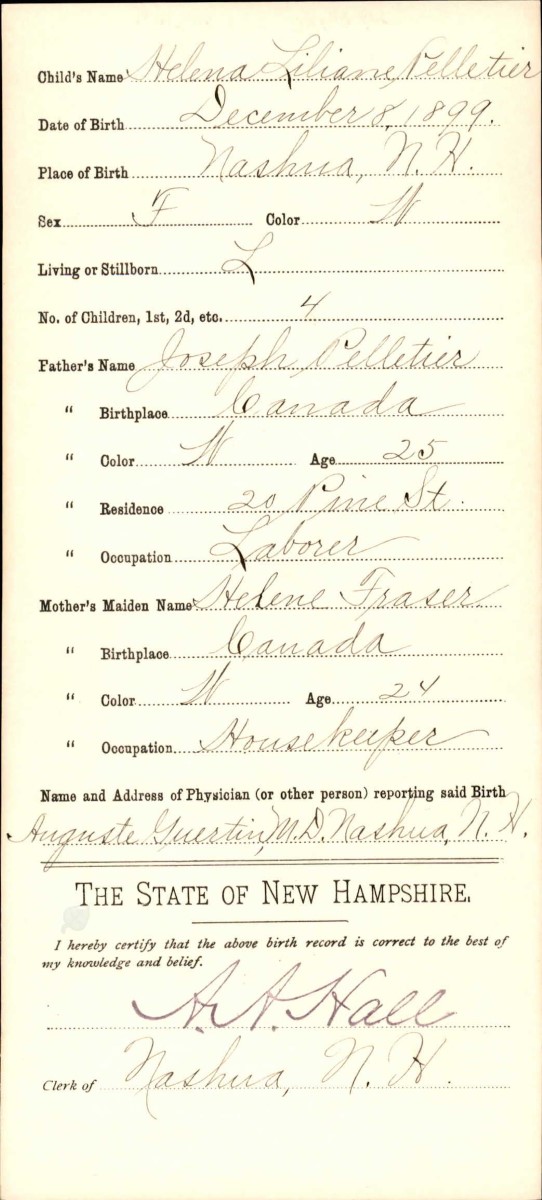 Child's Name Helena Liliane Pelletier
Date of Birth December 8, 1899.
Place of Birth Nashua, N. H.
Sex F Color W
Living or Stillborn L
No. of Children, 1st, 2d, etc. 4
Father's Name Joseph Pelletier
" Birthplace Canada
" Color W Age 25
" Residence 20 Pine St.
" Occupation Laborer
Mother's Maiden Name Helene Fraser
" Birthplace Canada
" Color W Age 24
" Occupation Housekeeper
Name and Address of Physician (or other person) reporting said Birth
Auguste Guertin, M.D. Nashua, N. H.
THE STATE OF NEW HAMPSHIRE.
I hereby certify that the above birth record is correct to the best of
my knowledge and belief.
A. A. Hall
Clerk of Nashua, N. H.